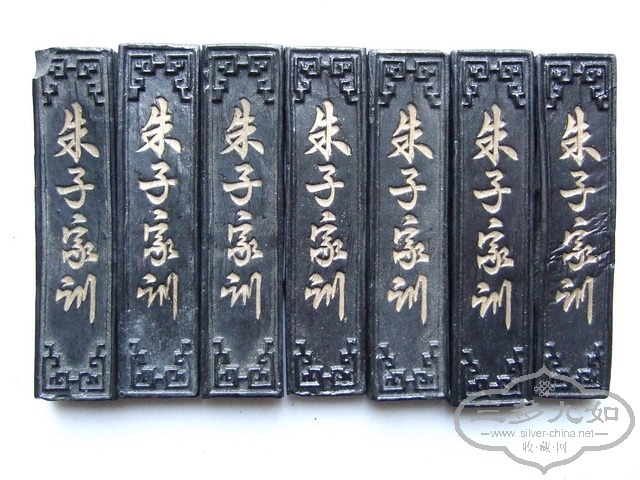 朱子家训
朱子家训
朱子家训
朱子家训
朱子家训
朱子家训
朱子家训
三多九如
www.silver-china.net
收·藏·网